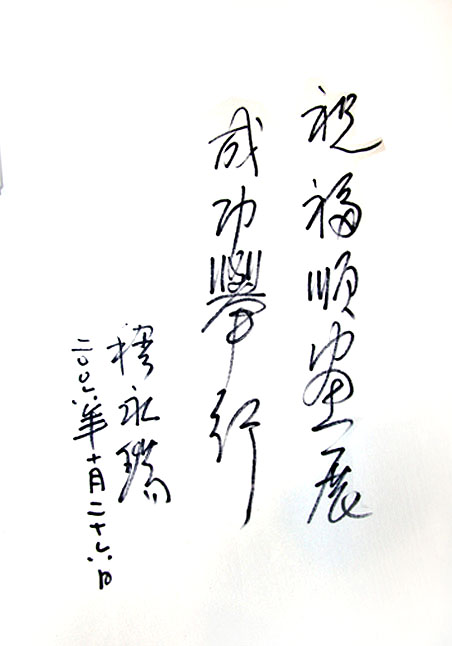 祝福順畫展
成功舉行
永瑞
二〇〇六年十月二十六日